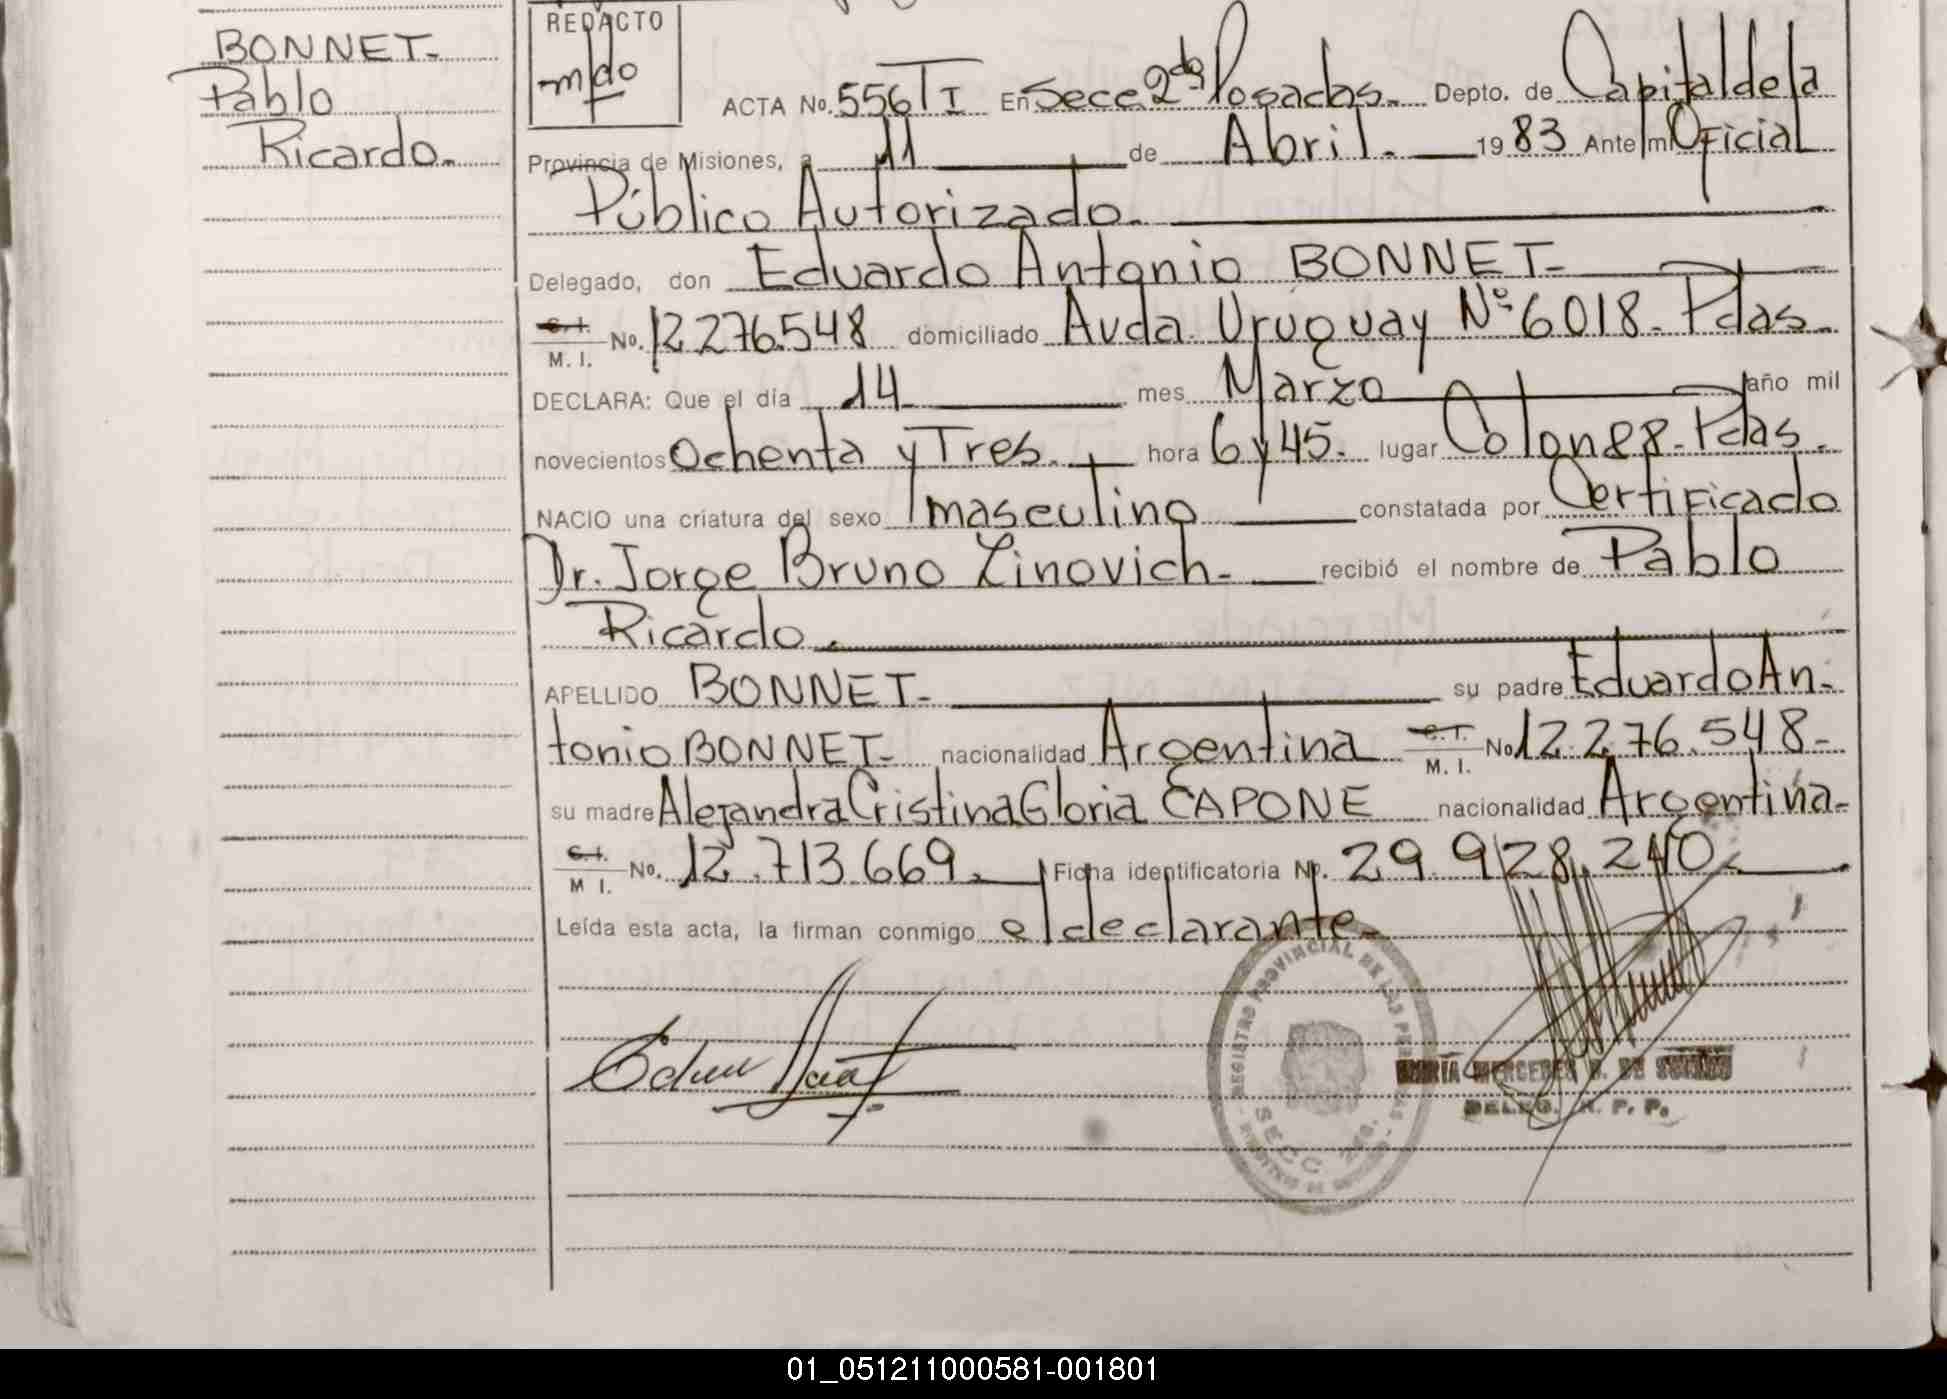 BONNET-
Pablo
Ricardo.-
REDACTO
ACTA No. 556 TI En Secc. 2da Posadas.- Depto. de Capital de la
Provincia de Misiones, a 11 de Abril.- 1983 Ante mi Oficial
Público Autorizado.-
Delegado, don Eduardo Antonio BONNET-
C.I. M. I. No. 12.276.548 domiciliado Avda. Uruguay Nº 6018- Pdas.-
DECLARA: Que el día 14 mes Marzo año mil
novecientos Ochenta y Tres.- hora 6 y 45.- lugar Colon Pdas.-
NACIO una criatura del sexo masculino constatada por Certificado
Dr. Jorge Bruno Zinovich- recibió el nombre de Pablo
Ricardo.-
APELLIDO BONNET- su padre Eduardo An-
tonio BONNET- nacionalidad Argentina C.I. M. I. No 12.276.548-
su madre Alejandra Cristina Gloria CAPONE nacionalidad Argentina-
C.I. M I. No. 12.713.669.- Ficha identificatoria Nº. 29.928.240.-
Leída esta acta, la firman conmigo el declarante-
REGISTRO PROVINCIAL DE LAS PERSONAS
SECC.
MARÍA MERCEDES DE
DELEG. R. P. P.
01_051211000581-001801